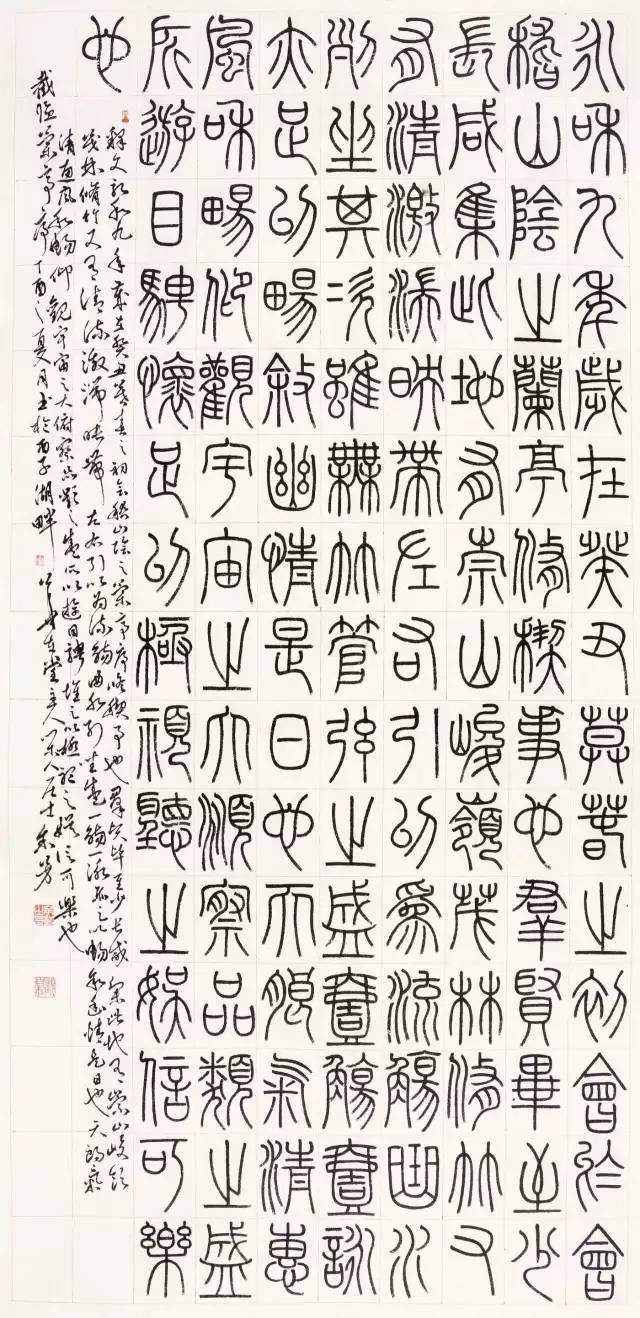 永和九年歲在癸丑暮春之初會於會
稽山陰之蘭亭修禊事也群賢畢至少
長咸集此地有崇山峻嶺茂林修竹又
有清激湍映帶左右引以為流觴曲水
列坐其次雖無竹管弦之盛壹觴壹詠
亦足以暢敘幽情是日也天朗氣清惠
風和暢仰觀宇宙之大俯察品類之盛
所遊目騁懷足以極視聽之娛信可樂
也
釋文永和九年歲在癸丑暮春之初會稽山陰之蘭亭序修禊事也群賢畢至少長咸集此地有崇山峻嶺
茂林修竹又有清流激湍映帶左右引以為流觴曲水列坐一觴一詠亦足以暢敘幽情是日也天朗氣
清惠風和暢仰觀宇宙之大俯察品類之盛所以遊目騁懷足以極視聽之娛信可樂也
截臨蘭亭序丁酉之夏月書於西子湖畔主人居士